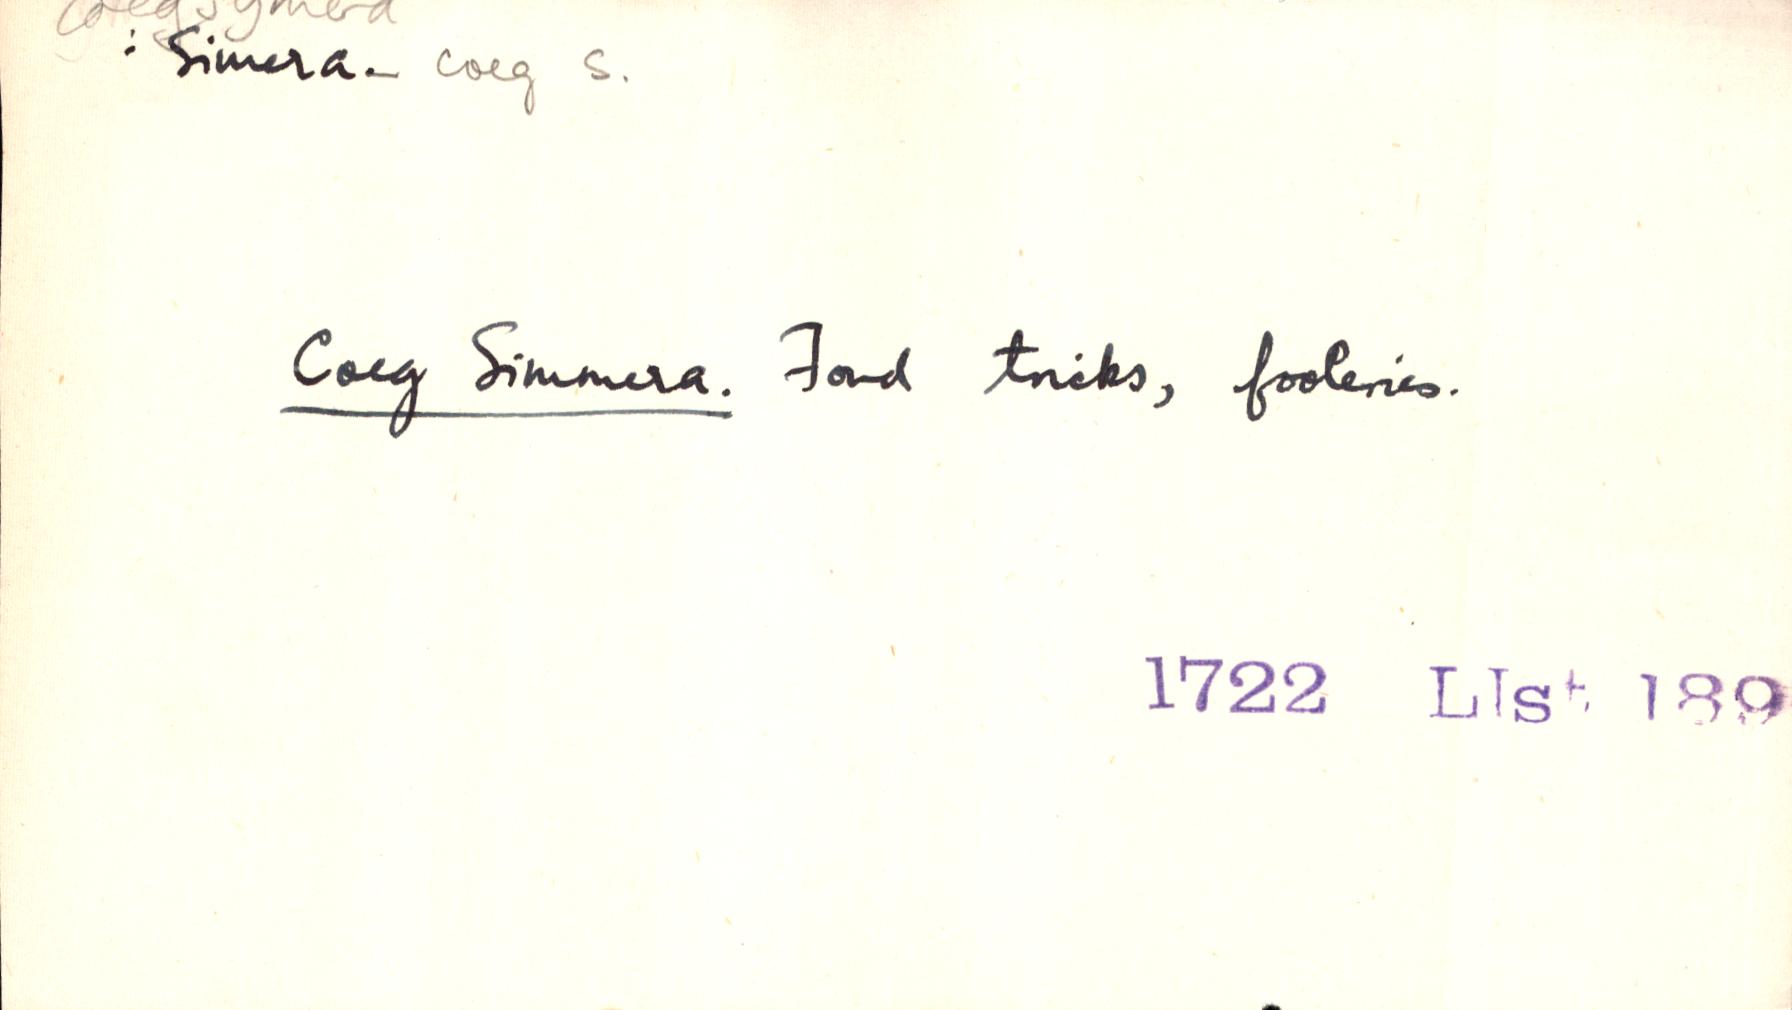 coegsymera
: Simera - coeg s.
Coeg Simmera. Fond tricks, fooleries.
1722 LIst 189